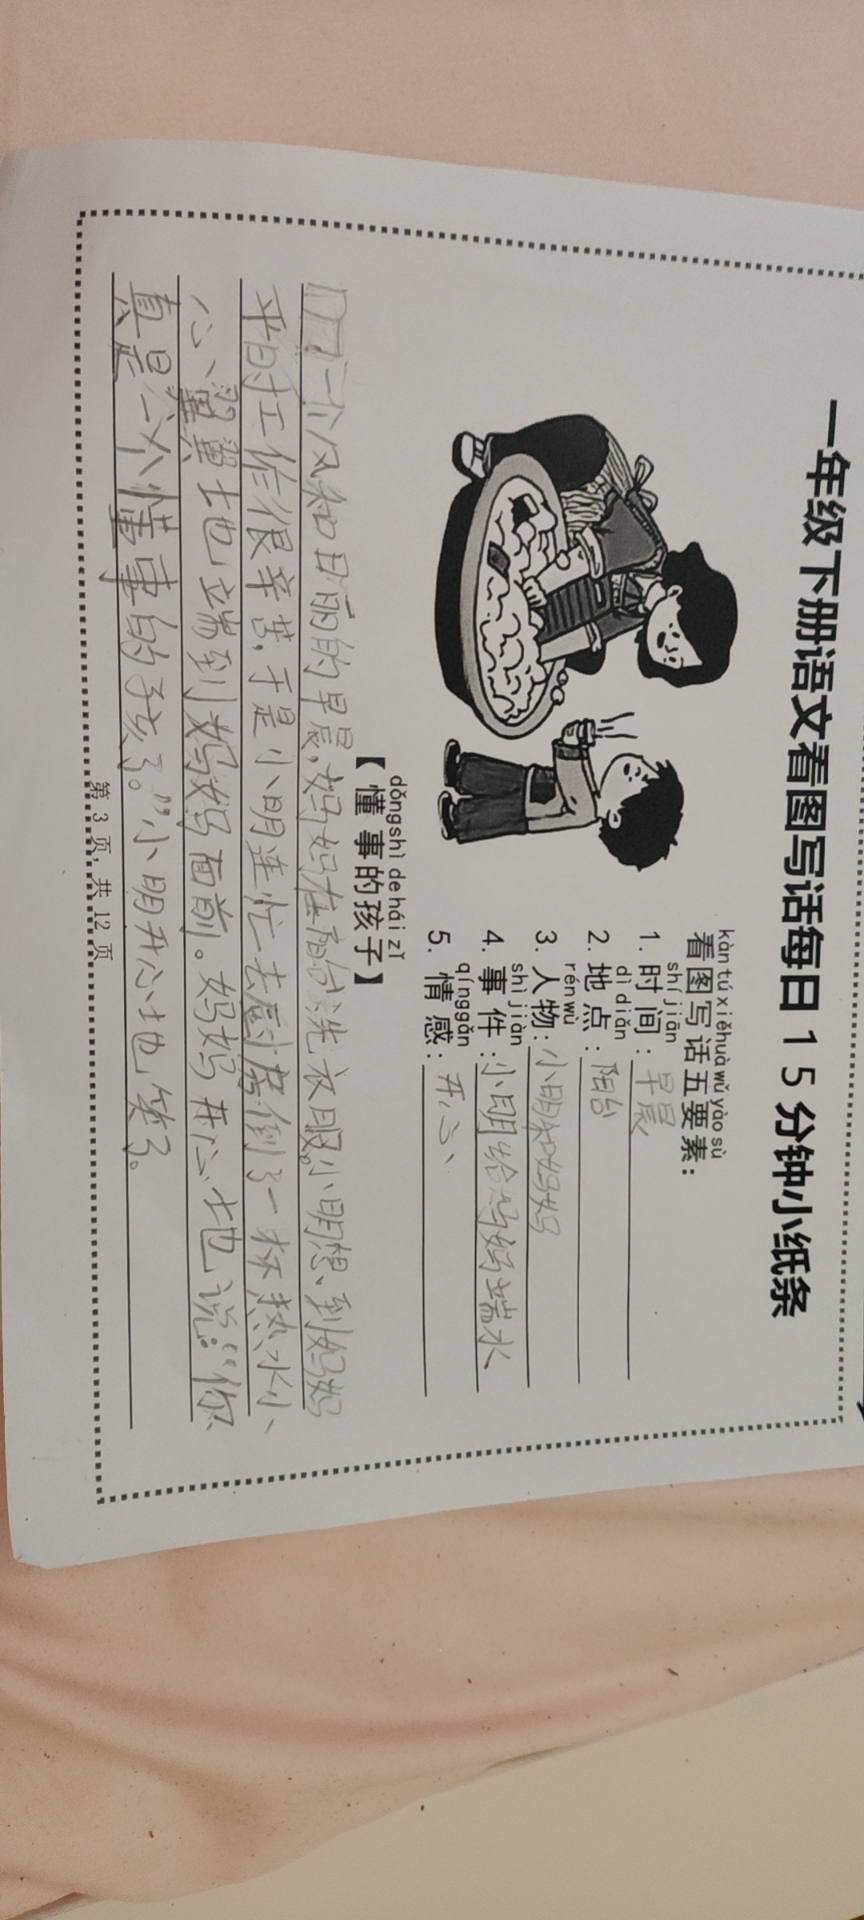 一年级下册语文看图写话每日15分钟小纸条
kàn tú xiě huà wǔ yào sù
看图写话五要素：
shí jiān
1. 时间：早晨
dì diǎn
2. 地点：阳台
rén wù
3. 人物：小明和妈妈
shì jiàn
4. 事件：小明给妈妈端水
qíng gǎn
5. 情感：开心
dǒng shì de hái zǐ
【懂事的孩子】
一个风和日丽的早晨，妈妈在阳台洗衣服。小明想到妈妈
平时工作很辛苦，于是小明连忙去厨房倒了一杯热水小
心翼翼地端到妈妈面前。妈妈开心地说：“你
真是个懂事的孩子。”小明开心地笑了。
第 3 页，共 12 页